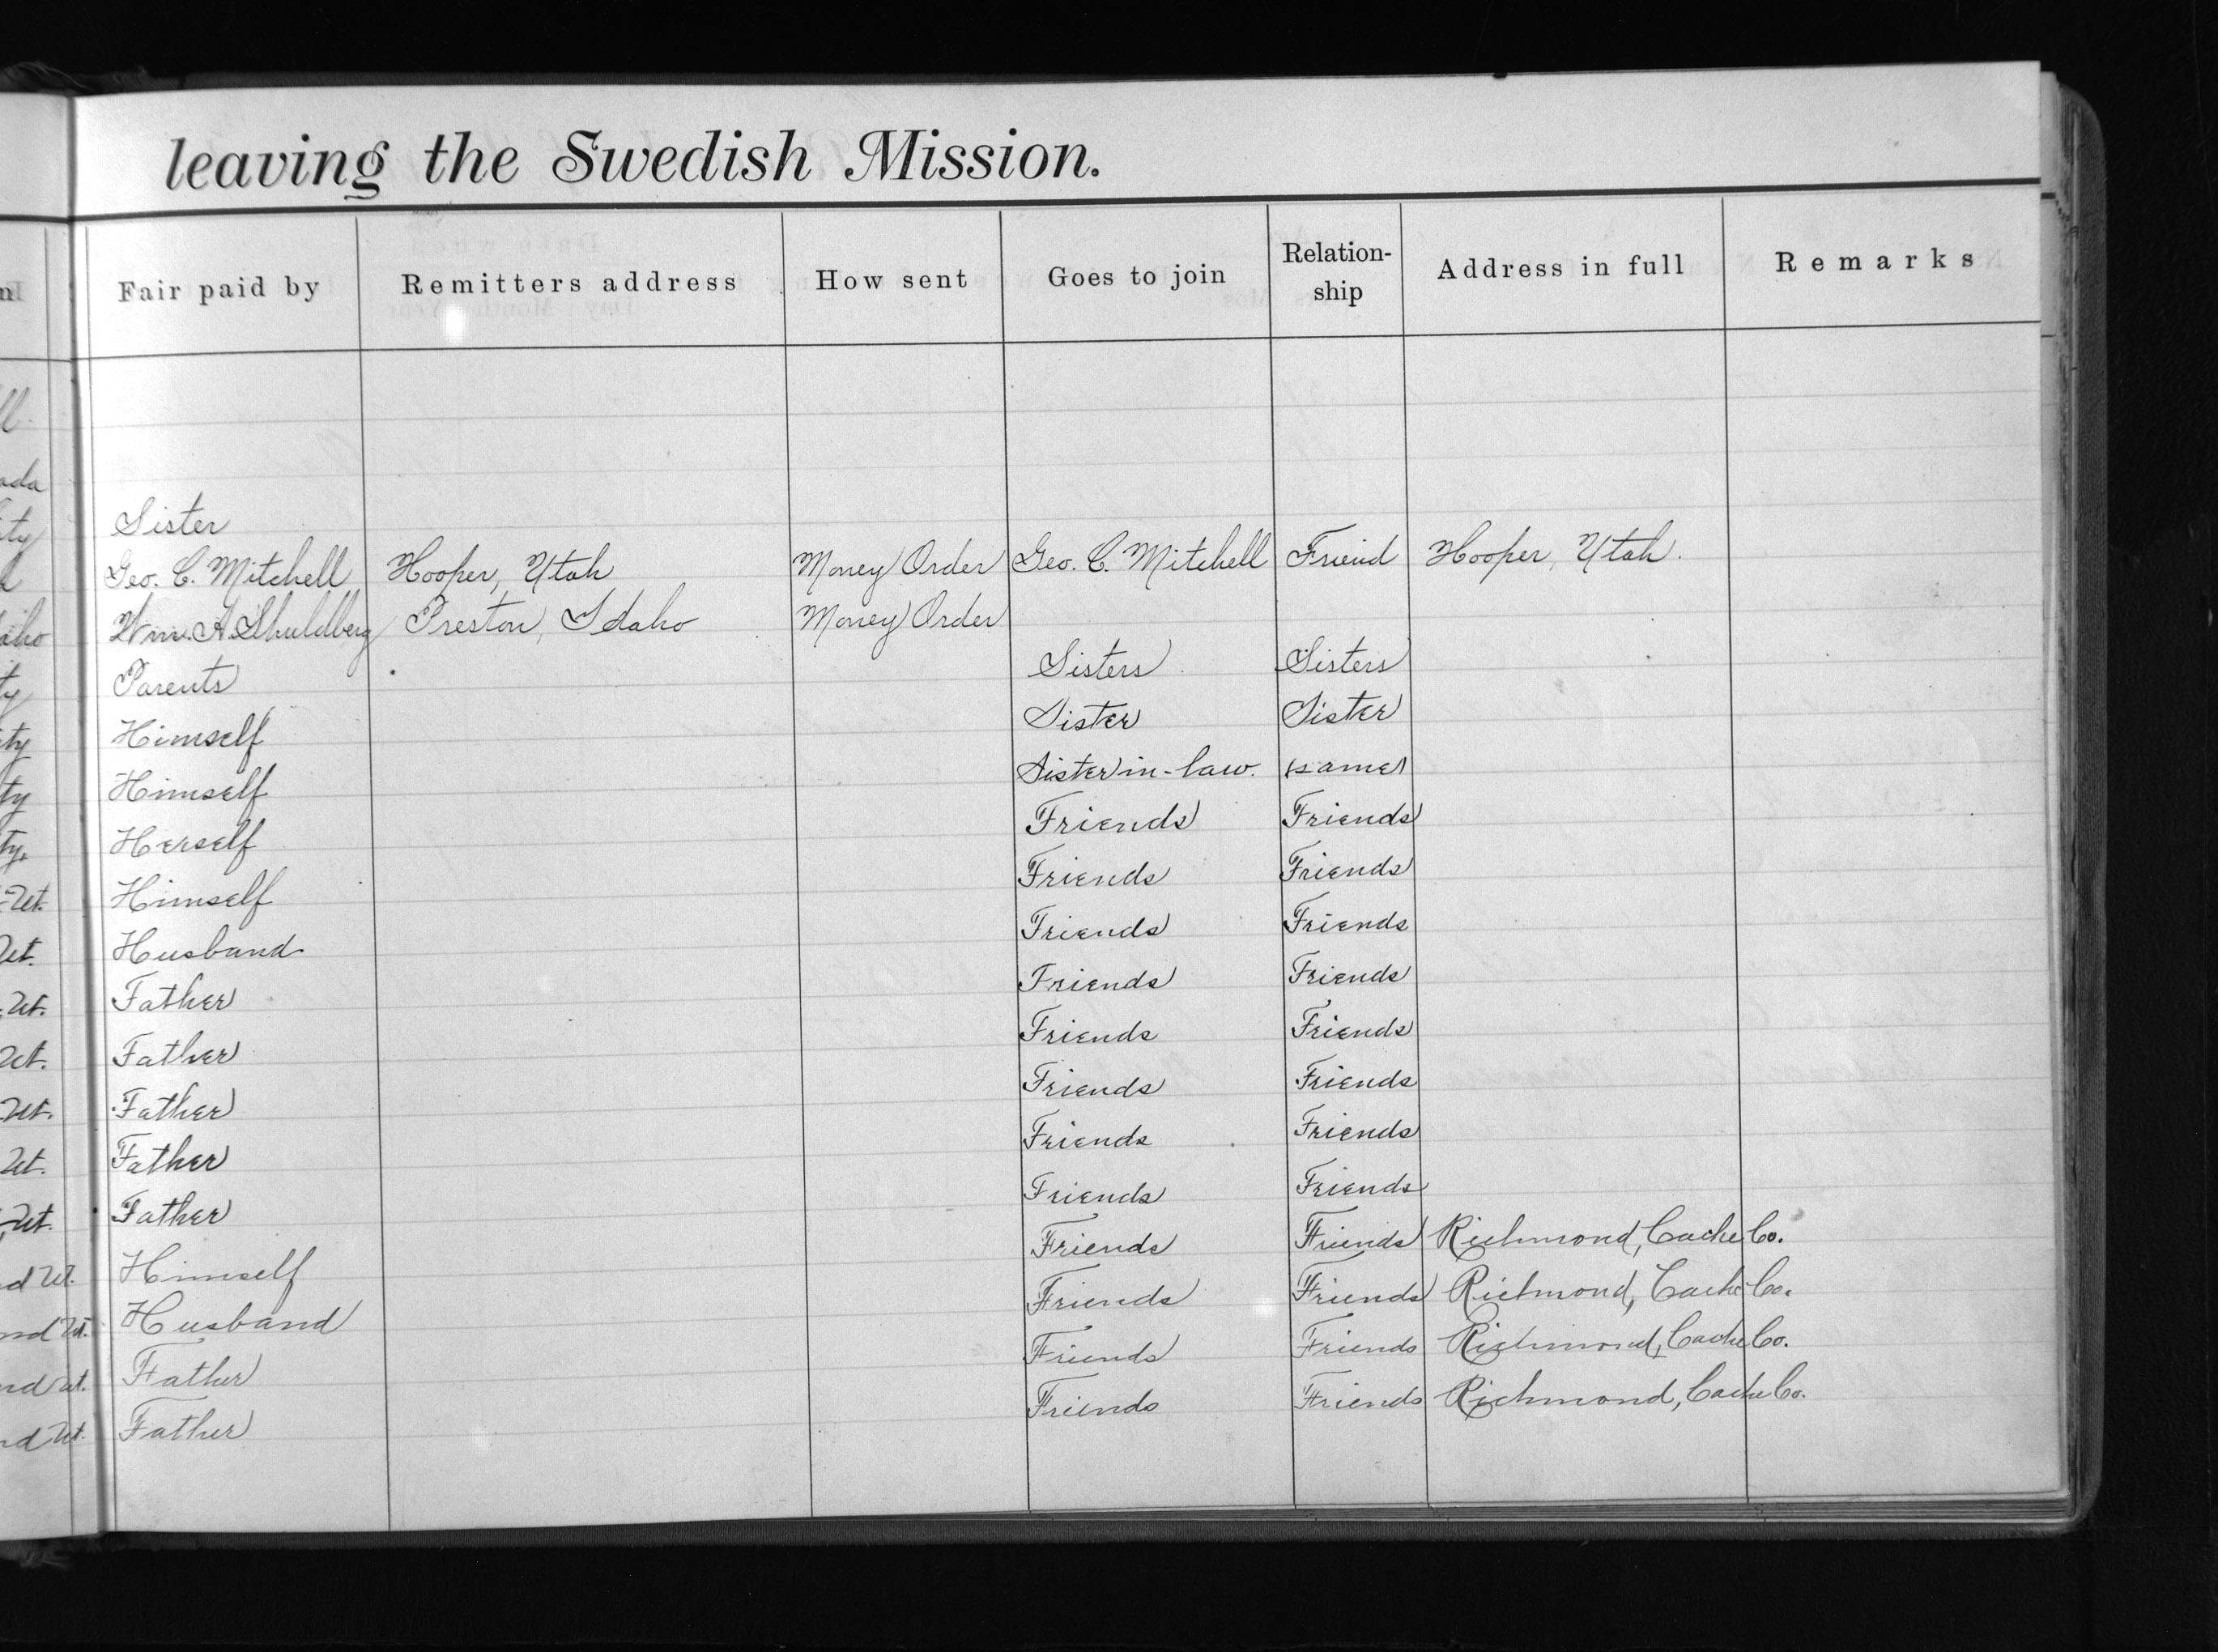 leaving the Swedish Mission.
Fair paid by Remitters address How sent Goes to join Relation-ship Address in full Remarks
ll.
ada
ity Sister
Geo. C. Mitchell Hooper, Utah Money Order Geo. C. Mitchell Friend Hooper, Utah.
aho Wm. A. Shuldberg Preston, Idaho Money Order
ty Parents Sisters Sisters
ity Himself Sister Sister
ty Himself Sister in-law. (same)
ty. Herself Friends Friends
Ut. Himself Friends Friends
Ut. Husband Friends Friends
Ut. Father Friends Friends
Ut. Father Friends Friends
Ut. Father Friends Friends
Ut. Father Friends Friends
Ut. Father Friends Friends
d Ut. Himself Friends Friends Richmond, Cache Co.
nd Ut. Husband Friends Friends Richmond, Cache Co.
nd Ut. Father Friends Friends Richmond, Cache Co.
nd Ut. Father Friends Friends Richmond, Cache Co.